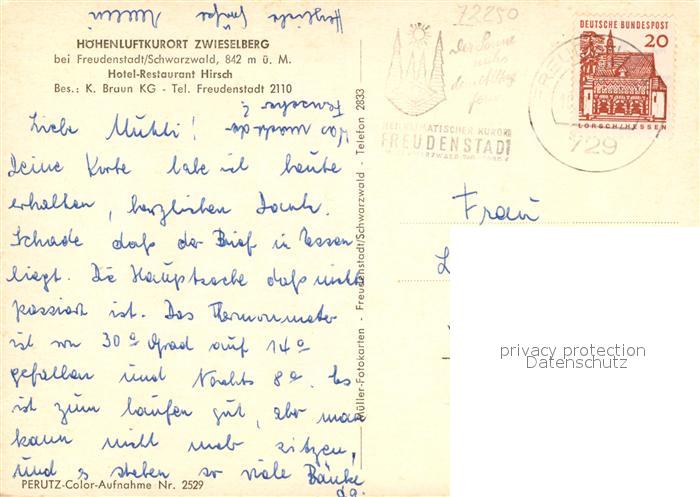 Herzliche Grüße
HÖHENLUFTKURORT ZWIESELBERG
bei Freudenstadt/Schwarzwald, 842 m ü. M.
Hotel-Restaurant Hirsch
Bes.: K. Braun KG - Tel. Freudenstadt 2110
Liebe
Deine Karte habe ich heute
erhalten, herzlichen Dank.
Schade daß der Brief in Essen
liegt. Die Hauptsache daß nichts
passiert ist. Das Thermometer
ist von 30° Grad auf 14°
gefallen und Nachts 8°. Es
ist zum laufen gut, aber man
kann nicht mehr sitzen,
und es stehen so viele Bänke
da.
PERUTZ-Color-Aufnahme Nr. 2529
Müller-Fotokarten - Freudenstadt/Schwarzwald - Telefon 2833
72250
Der Sonne
HEILKLIMATISCHER KURORT
FREUDENSTADT
729
DEUTSCHE BUNDESPOST
20
LORSCH/HESSEN
Frau
privacy protection
Datenschutz